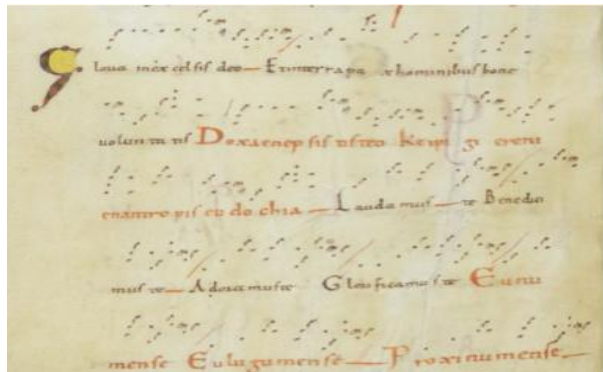 Gloria inexcelsis deo Etinterrapax hominibus bone
voluntatis Doxaenepsistis teo Keipi gi ereni
enantropis eudochia Laudamus te Benedici
mus te Adoramuste Glorificamus te Eunu
mense Eulugumense Proxinumense